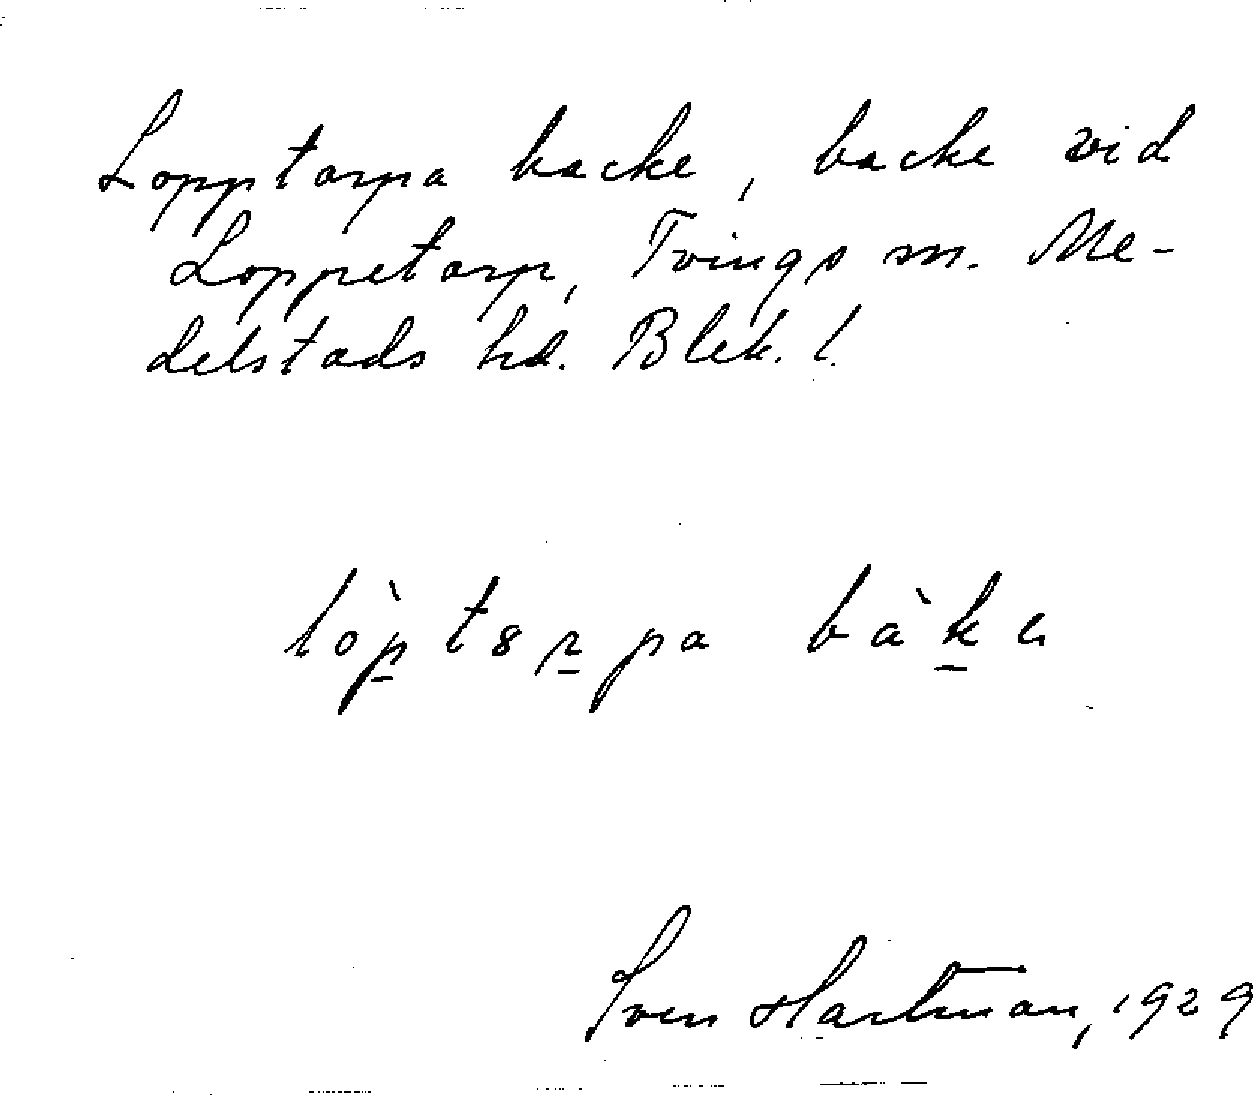 Lopptorpa backe, backe vid
Loppetorp, Tvings sn. Me-
delstads hd. Blek. l.
lòp̱tsṟpa bàḵe
Sven Hartman, 1929